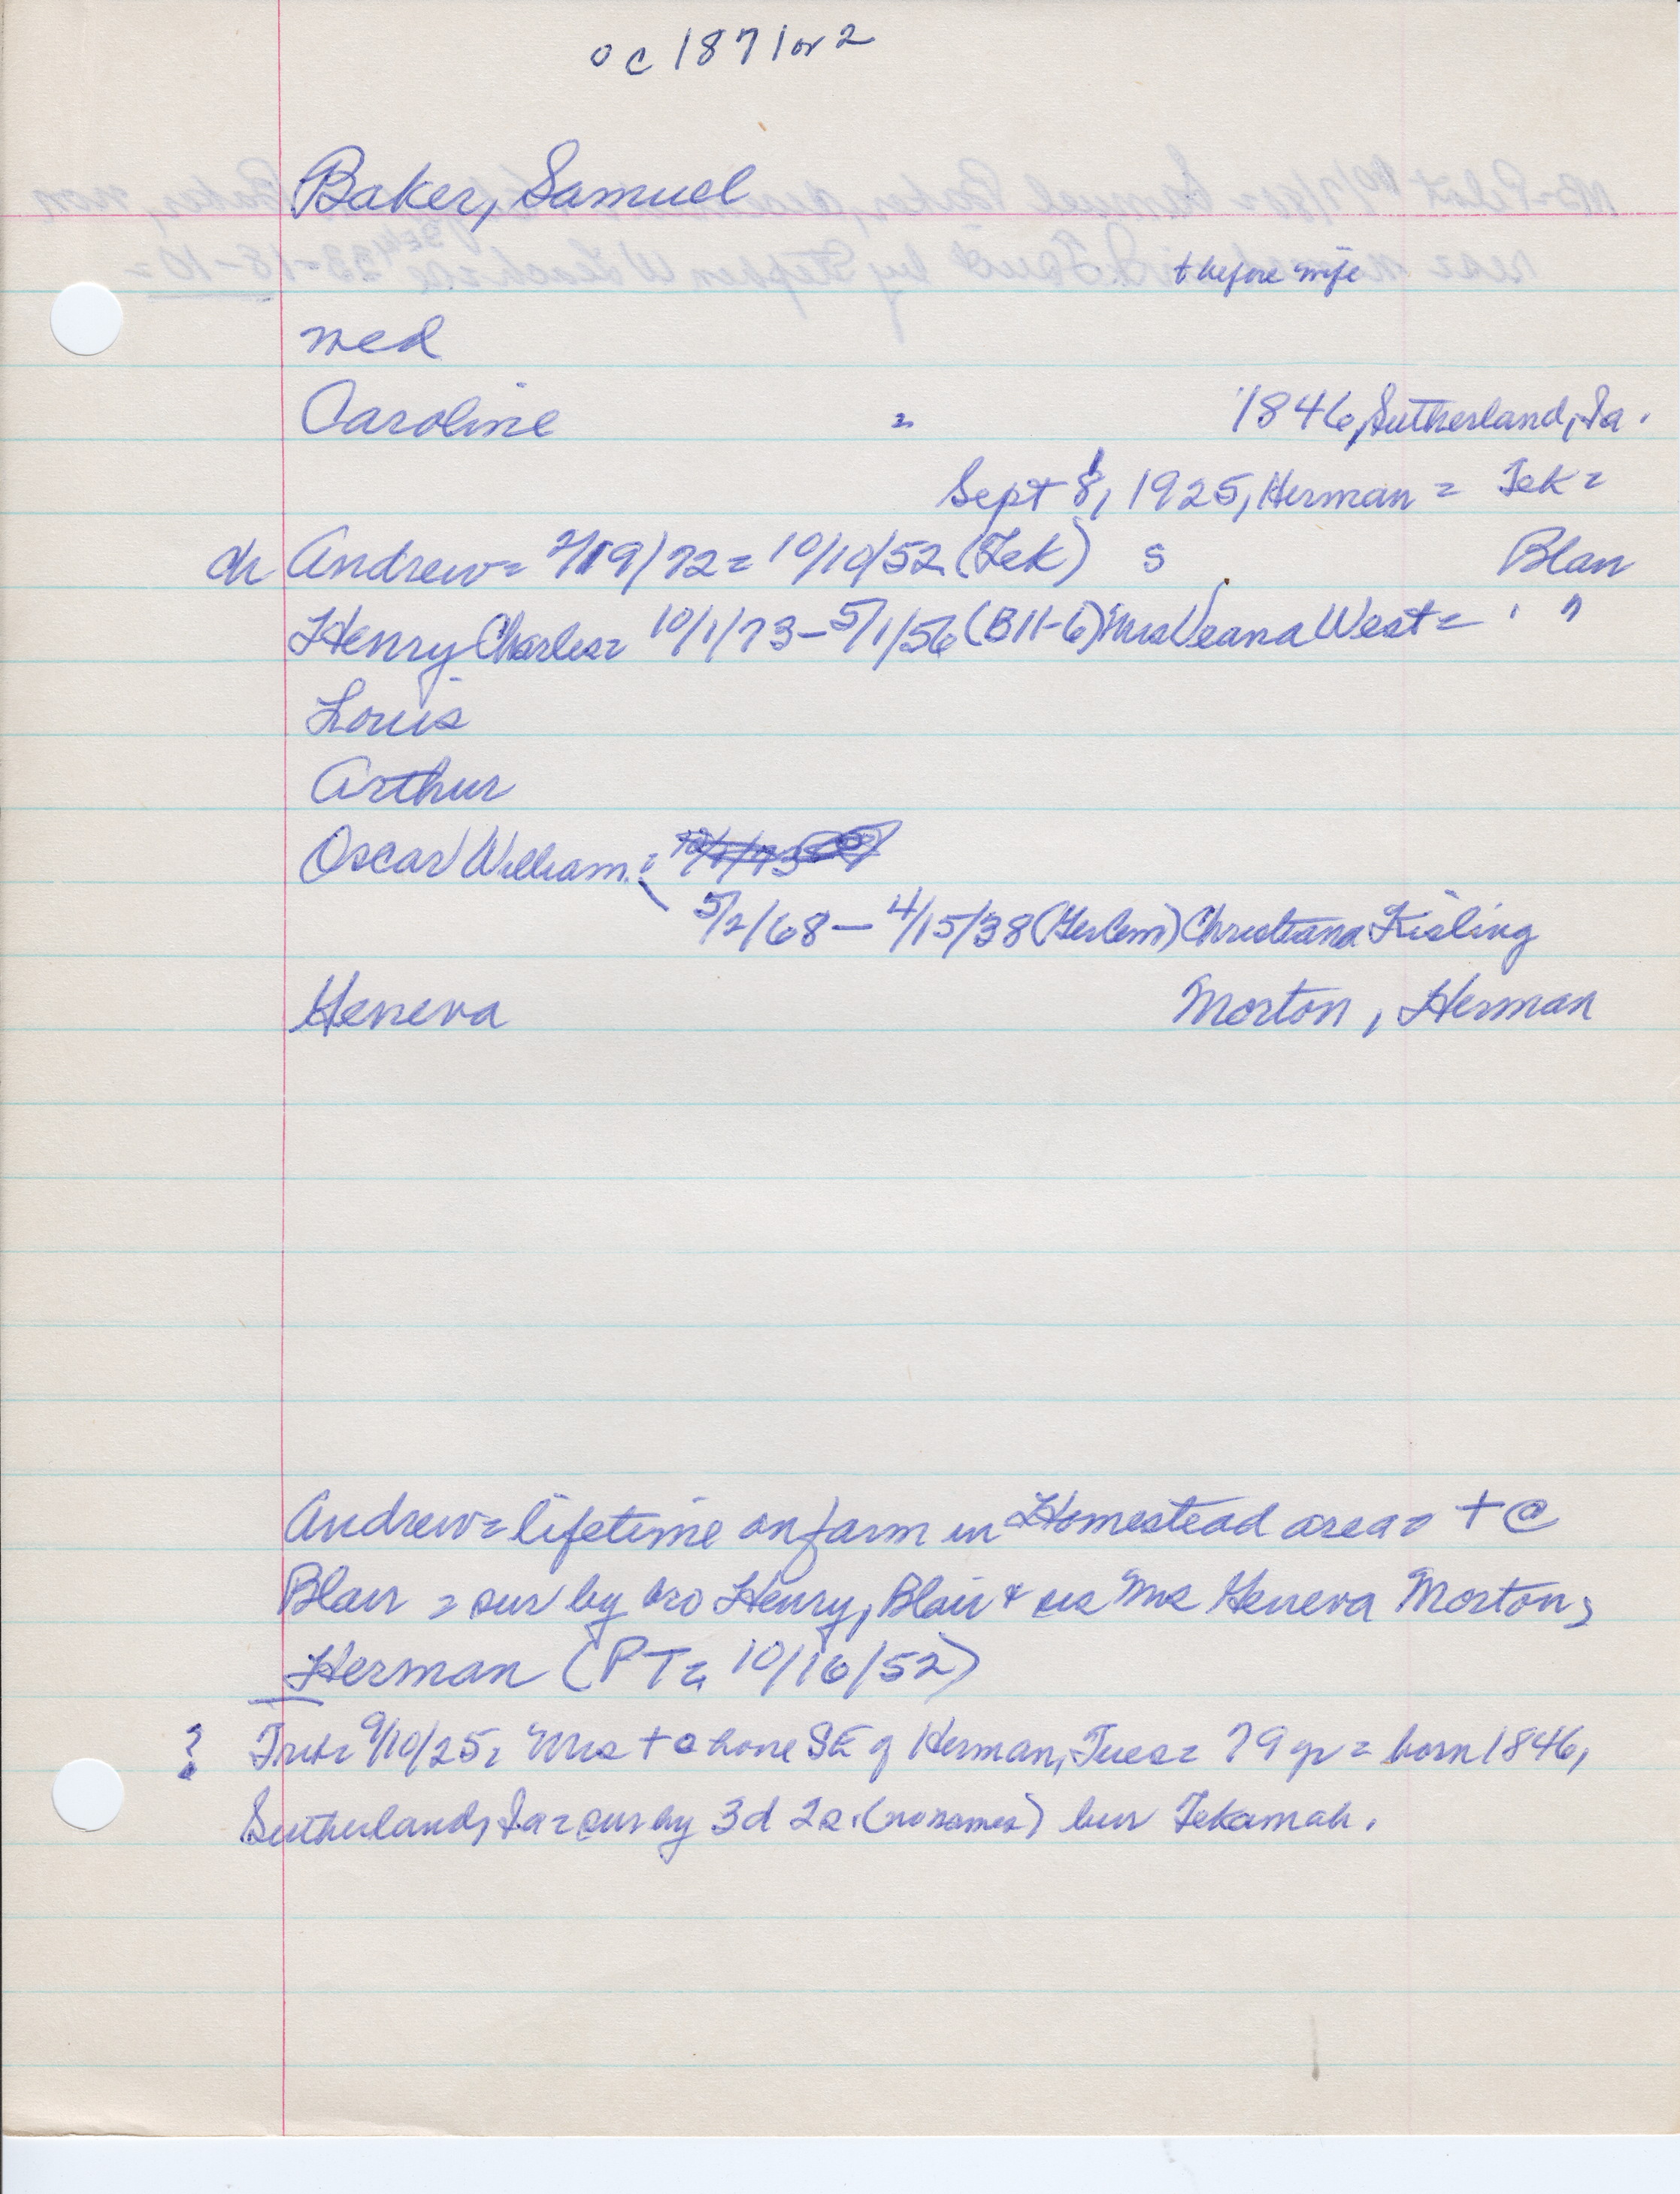 oc 1871 or 2
Baker, Samuel
+ before wife
med
Caroline = 1846, Sutherland, Ia.
Sept 8, 1925, Herman = Tek =
ch Andrew = 2/19/72 = 10/10/52 (Tek) s Blair
Henry Charles = 10/1/73 - 5/1/56 (B11-6) Mrs Veana West = " "
Louis
Arthur
Oscar William =
5/2/68 - 4/15/38 ( ) Christiana Kisling
Geneva Morton, Herman
Andrew = lifetime on farm in Homestead area = + @
Blair = sur by bro Henry, Blair & sis Mrs Geneva Morton,
Herman (PT = 10/16/52)
? Trib = 9/10/25 = Mrs + @ home SE of Herman, Tues = 79 yr = born 1846,
Sutherland, Ia = sur by 3d 2s. (no names) bur Tekamah.